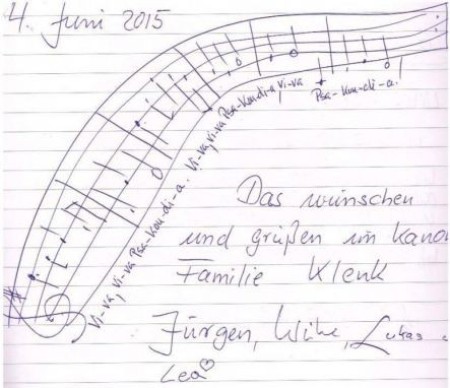 4. Juni 2015
Vi-va, vi-va Psa-kou-di-a. Vi-va, vi-va Psa-kou-di-a, vi-va Psa-kou-di-a.
Das wünschen
und grüßen im Kanon
Familie Klenk
Jürgen, Lukas
Lea